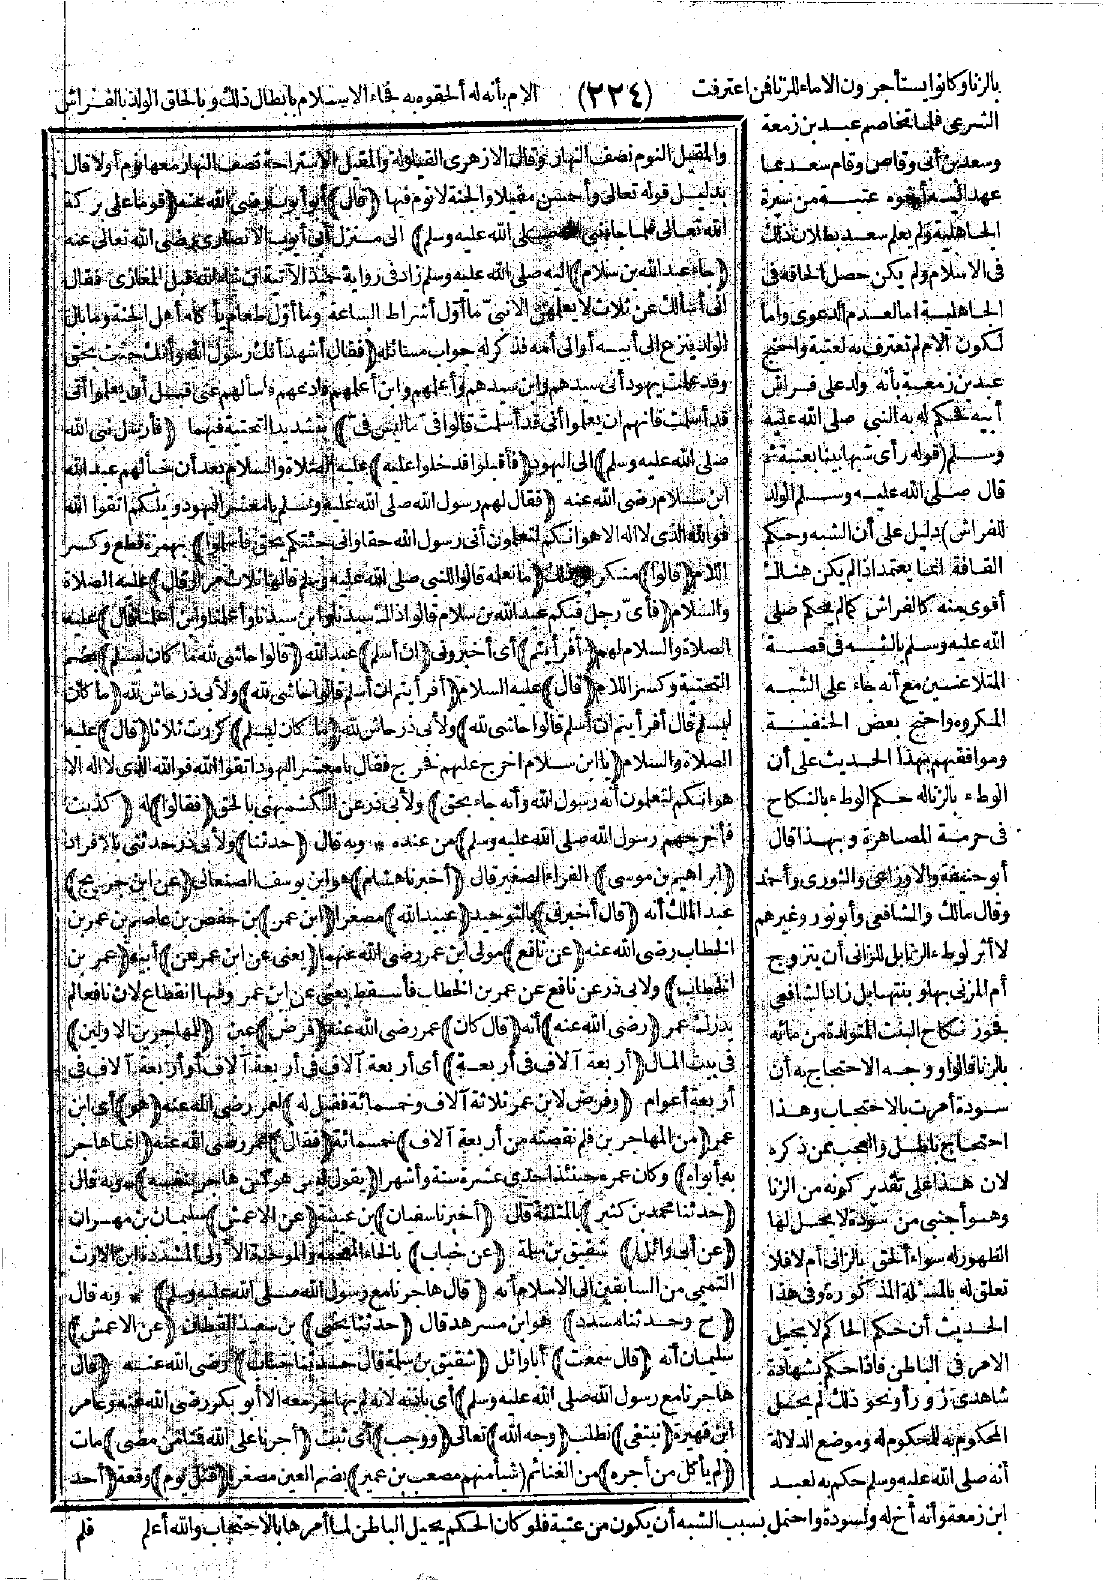 بالزنا وكانوا يستأجرون الاماء للزنا فمن اعترفت
(٢٢٤)
الام بأنه له ألحقوه به فجاء الاسلام بابطال ذلك وبالحاق الولد بالفراش
الشرعي فلما تخاصم عبد بن زمعة
وسعد بن أبي وقاص وقام سعد بما
عهد اليه أخوه عتبة من سيرة
الجاهلية ولم يعلم سعد بطلان ذلك
في الاسلام ولم يكن حصل الحاقه في
الجاهلية اما لعدم الدعوى واما
لكون الام لم تعترف به لعتبة واحتج
عبد بن زمعة بأنه ولد على فراش
أبيه فحكم له به النبي صلى الله عليه
وسلم (قوله رأى شبها بينا بعتبة ثم
قال صلى الله عليه وسلم الولد
للفراش) دليل على أن الشبه وحكم
القافة انما يعتمد اذا لم يكن هناك
أقوى منه كالفراش كما لم يحكم صلى
الله عليه وسلم بالشبه في قصة
المتلاعنين مع أنه جاء على الشبه
المكروه واحتج بعض الحنفية
وموافقيهم بهذا الحديث على أن
الوطء بالزنا له حكم الوطء بالنكاح
في حرمة المصاهرة وبهذا قال
أبو حنيفة والاوزاعي والثوري وأحمد
وقال مالك والشافعي وأبو ثور وغيرهم
لا أثر لوطء الزنا بل للزاني أن يتزوج
أم المزني بها وبنتها بل زاد الشافعي
فجوز نكاح البنت المتولدة من مائه
بالزنا قالوا ووجه الاحتجاج به أن
سودة أمرت بالاحتجاب وهذا
احتجاج باطل والعجب ممن ذكره
لان هذا على تقدير كونه من الزنا
وهو أجنبي من سودة لا يحل لها
الظهور له سواء ألحق بالزاني أم لا فلا
تعلق له بالمسئلة المذكورة وفي هذا
الحديث أن حكم الحاكم لا يحيل
الامر في الباطن فاذا حكم بشهادة
شاهدي زور أو نحو ذلك لم يحل
المحكوم به للمحكوم له وموضع الدلالة
أنه صلى الله عليه وسلم حكم به لعبد
ابن زمعة وأنه أخ له ولسودة واحتمل بسبب الشبه أن يكون من عتبة فلو كان الحكم يحيل الباطن لما أمرها بالاحتجاب والله أعلم
والمقيل النوم نصف النهار وقال الازهري القيلولة والمقيل الاستراحة نصف النهار معها نوم أو لا قال
بدليل قوله تعالى وأحسن مقيلا والجنة لا نوم فيها (قال) أبو أيوب رضي الله عنه (قوما على بركة
الله تعالى فلما جاء نبي الله صلى الله عليه وسلم) الى منزل أبي أيوب الأنصاري رضي الله تعالى عنه
(جاء عبد الله بن سلام) اليه صلى الله عليه وسلم زاد في رواية حميد الآتية ان شاء الله قبل المغازي فقال
اني أسألك عن ثلاث لا يعلمهن الا نبي ما أول أشراط الساعة وما أول طعام يأكله أهل الجنة وما بال
الولد ينزع الى أبيه أو الى أمه فذكر له جواب مسائله (فقال أشهد أنك رسول الله وأنك جئت بحق
وقد علمت يهود أني سيدهم وابن سيدهم وأعلمهم وابن أعلمهم فادعهم فاسألهم عني قبل أن يعلموا أني
قد أسلمت فانهم ان يعلموا أني قد أسلمت قالوا فيّ ما ليس فيّ) بتشديد التحتية فيهما (فأرسل نبي الله
صلى الله عليه وسلم) الى اليهود (فأقبلوا فدخلوا عليه) عليه الصلاة والسلام بعد أن خبأ لهم عبد الله
ابن سلام رضي الله عنه (فقال لهم رسول الله صلى الله عليه وسلم يا معشر اليهود ويلكم اتقوا الله
فوالله الذي لا اله الا هو انكم لتعلمون أني رسول الله حقا وأني جئتكم بحق فأسلموا) بهمزة قطع وكسر
اللام (قالوا) منكرين ذلك (ما نعلمه قالوا للنبي صلى الله عليه وسلم قالها ثلاث مرار قال) عليه الصلاة
والسلام (فأي رجل فيكم عبد الله بن سلام قالوا ذاك سيدنا وابن سيدنا وأعلمنا وابن أعلمنا قال) عليه
الصلاة والسلام لهم (أفرأيتم) أي أخبروني (ان أسلم) عبد الله (قالوا حاشى لله ما كان ليسلم) بضم
التحتية وكسر اللام (قال) عليه السلام (أفرأيتم ان أسلم قالوا حاشى لله) ولأبي ذر حاش لله (ما كان
ليسلم قال أفرأيتم ان أسلم قالوا حاشى لله) ولأبي ذر حاش لله (ما كان ليسلم) كررت ثلاثا (قال) عليه
الصلاة والسلام (يا ابن سلام اخرج عليهم فخرج فقال يا معشر اليهود اتقوا الله فوالله الذي لا اله الا
هو انكم لتعلمون أنه رسول الله وأنه جاء بحق) ولأبي ذر عن الكشميهني بالحق (فقالوا) له (كذبت
فأخرجهم رسول الله صلى الله عليه وسلم) من عنده * وبه قال (حدثنا) ولأبي ذر حدثني بالافراد
(ابراهيم بن موسى) الفراء الصغير قال (أخبرنا هشام) هو ابن يوسف الصنعاني (عن ابن جريج)
عبد الملك أنه (قال أخبرني) بالتوحيد (عبيد الله) مصغرا (ابن عمر) بن حفص بن عاصم بن عمر بن
الخطاب رضي الله عنه (عن نافع) مولى ابن عمر رضي الله عنهما (يعني عن ابن عمر عن) أبيه (عمر بن
الخطاب) ولأبي ذر عن نافع عن عمر بن الخطاب فأسقط يعني عن ابن عمر وفيها انقطاع لان نافعا لم
يدرك عمر (رضي الله عنه) أنه (قال كان) عمر رضي الله عنه (فرض) عين (للمهاجرين الاولين)
في بيت المال (أربعة آلاف في أربعة) أي أربعة آلاف في أربعة آلاف أو أربعة آلاف في
أربعة أعوام (وفرض لابن عمر ثلاثة آلاف وخمسمائة فقيل له) لعمر رضي الله عنه (هو) أي ابن
عمر (من المهاجرين فلم نقصته من أربعة آلاف) خمسمائة (فقال) عمر رضي الله عنه (انما هاجر
به أبواه) وكان عمره حينئذ احدى عشرة سنة وأشهرا (يقول ليس هو كمن هاجر بنفسه) * وبه قال
(حدثنا محمد بن كثير) بالمثلثة قال (أخبرنا سفيان) بن عيينة (عن الاعمش) سليمان بن مهران
(عن أبي وائل) شقيق بن سلمة (عن خباب) بالخاء المعجمة والموحدة الأولى المشددة ابن الارت
التميمي من السابقين الى الاسلام أنه (قال هاجرنا مع رسول الله صلى الله عليه وسلم) * وبه قال
(ح وحدثنا مسدد) هو ابن مسرهد قال (حدثنا يحيى) بن سعيد القطان (عن الاعمش)
سليمان أنه (قال سمعت) أبا وائل (شقيق بن سلمة قال حدثنا خباب) رضي الله عنه (قال
هاجرنا مع رسول الله صلى الله عليه وسلم) أي باذنه لانه لم يهاجر معه الا أبو بكر رضي الله عنه وعامر
ابن فهيرة (نبتغي) نطلب (وجه الله) تعالى (ووجب) أي ثبت (أجرنا على الله فمنا من مضى) مات
(لم يأكل من أجره) من الغنائم (شيأ منهم مصعب بن عمير) بضم العين مصغرا (قتل يوم) وقعة (أحد
فلم